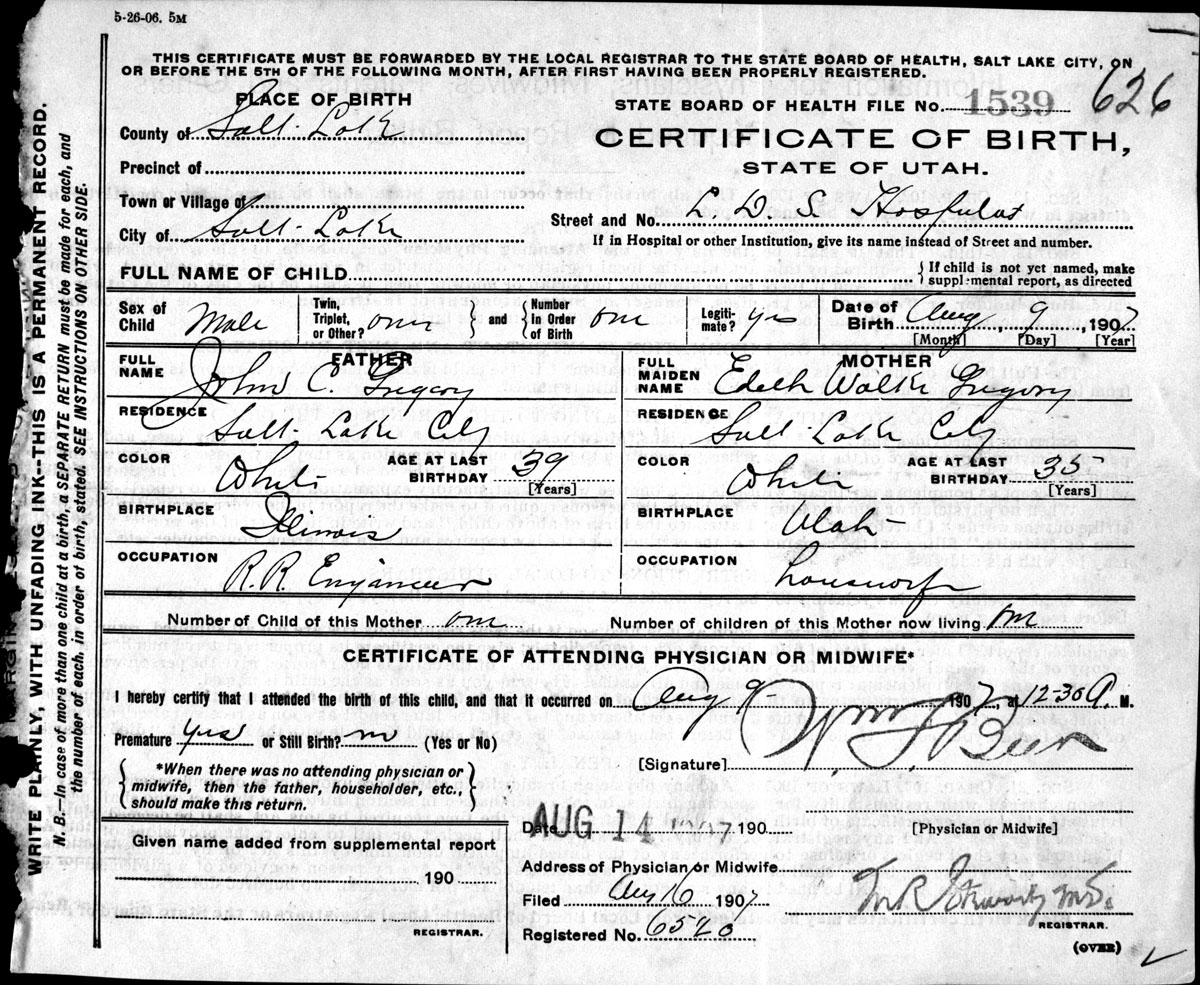 5-26-06. 5M
THIS CERTIFICATE MUST BE FORWARDED BY THE LOCAL REGISTRAR TO THE STATE BOARD OF HEALTH, SALT LAKE CITY, ON
OR BEFORE THE 5TH OF THE FOLLOWING MONTH, AFTER FIRST HAVING BEEN PROPERLY REGISTERED.
PLACE OF BIRTH
STATE BOARD OF HEALTH FILE No. 1539 626
County of Salt Lake
CERTIFICATE OF BIRTH,
STATE OF UTAH.
Precinct of
Town or Village of
Street and No. L. D. S. Hospital
City of Salt Lake
If in Hospital or other Institution, give its name instead of Street and number.
FULL NAME OF CHILD
If child is not yet named, make
supplemental report, as directed
Sex of Child Male
Twin, Triplet, or Other? one
and
Number In Order of Birth one
Legiti-mate? yes
Date of Birth Aug 9, 1907
[Month] [Day] [Year]
FATHER
FULL NAME John C. Gregory
MOTHER
FULL MAIDEN NAME Edith Walke Gregory
RESIDENCE Salt Lake City
RESIDENCE Salt Lake City
COLOR White
AGE AT LAST BIRTHDAY 39
[Years]
COLOR White
AGE AT LAST BIRTHDAY 35
[Years]
BIRTHPLACE Illinois
BIRTHPLACE Utah
OCCUPATION R.R. Engineer
OCCUPATION housewife
Number of Child of this Mother one
Number of children of this Mother now living one
CERTIFICATE OF ATTENDING PHYSICIAN OR MIDWIFE*
I hereby certify that I attended the birth of this child, and that it occurred on Aug 9 1907 at 12-30 A. M.
Premature yes or Still Birth? no (Yes or No)
[Signature] Wm F Beer
*When there was no attending physician or
midwife, then the father, householder, etc.,
should make this return.
Date AUG 14 1907 190
[Physician or Midwife]
Given name added from supplemental report
190
REGISTRAR.
Address of Physician or Midwife
Filed Aug 16 1907
M.D.
REGISTRAR.
Registered No. 6520
(OVER)
WRITE PLAINLY, WITH UNFADING INK--THIS IS A PERMANENT RECORD.
N. B.--In case of more than one child at a birth, a SEPARATE RETURN must be made for each, and
the number of each, in order of birth, stated. SEE INSTRUCTIONS ON OTHER SIDE.